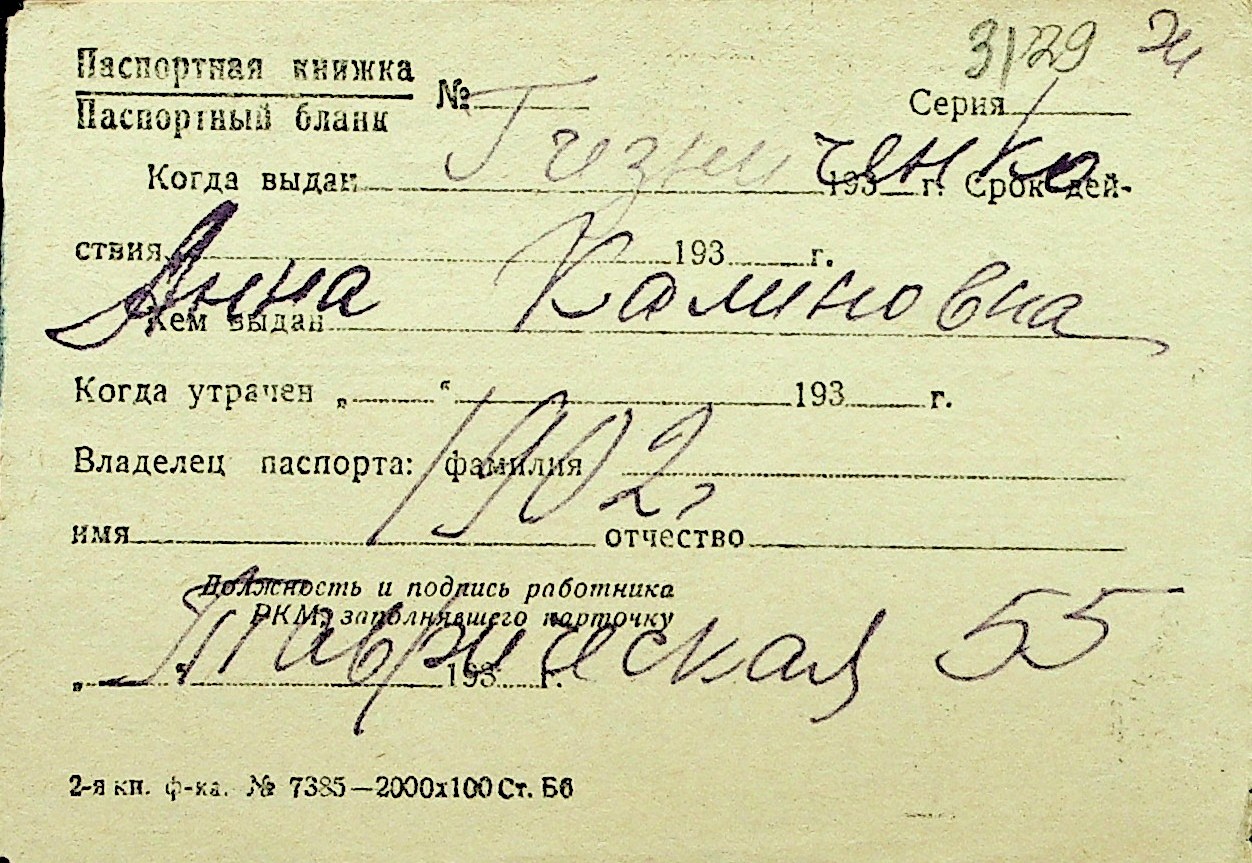 3/29 Ж
Паспортная книжка
Паспортный бланк
№ Серия
Гизниченко
Когда выдан 193 г. Срок дей-
ствия 193 г.
Анна Калиновна
Кем выдан
Когда утрачен „ “ 193 г.
Владелец паспорта: фамилия
1902,
имя отчество
Должность и подпись работника
РКМ, заполнявшего карточку
Таврическая 55
„ “ 193 г.
2-я кн. ф-ка. № 7385—2000х100 Ст. Бб